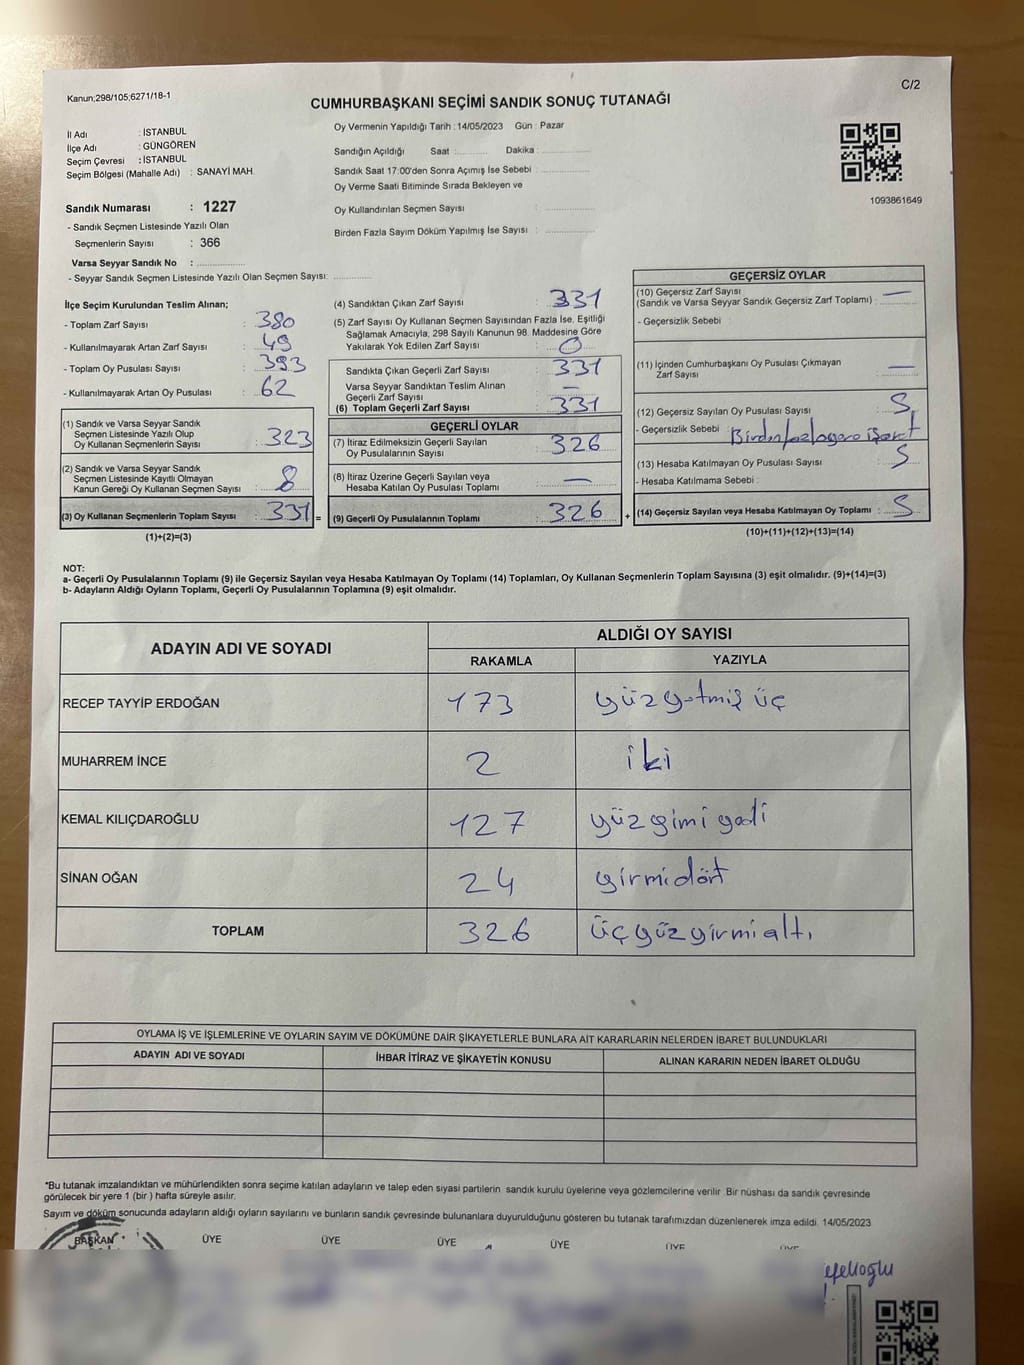 Kanun;298/105;6271/18-1
C/2
CUMHURBAŞKANI SEÇİMİ SANDIK SONUÇ TUTANAĞI
İl Adı : İSTANBUL
İlçe Adı : GÜNGÖREN
Seçim Çevresi : İSTANBUL
Seçim Bölgesi (Mahalle Adı) : SANAYİ MAH.
Sandık Numarası : 1227
- Sandık Seçmen Listesinde Yazılı Olan
Seçmenlerin Sayısı : 366
Varsa Seyyar Sandık No :
- Seyyar Sandık Seçmen Listesinde Yazılı Olan Seçmen Sayısı:
Oy Vermenin Yapıldığı Tarih : 14/05/2023 Gün : Pazar
Sandığın Açıldığı Saat : Dakika :
Sandık Saat 17:00'den Sonra Açımış İse Sebebi :
Oy Verme Saati Bitiminde Sırada Bekleyen ve
Oy Kullandırılan Seçmen Sayısı :
Birden Fazla Sayım Döküm Yapılmış İse Sayısı :
1093861649
İlçe Seçim Kurulundan Teslim Alınan;
- Toplam Zarf Sayısı : 380
- Kullanılmayarak Artan Zarf Sayısı : 49
- Toplam Oy Pusulası Sayısı : 393
- Kullanılmayarak Artan Oy Pusulası : 62
(1) Sandık ve Varsa Seyyar Sandık
Seçmen Listesinde Yazılı Olup
Oy Kullanan Seçmenlerin Sayısı : 323
(2) Sandık ve Varsa Seyyar Sandık
Seçmen Listesinde Kayıtlı Olmayan
Kanun Gereği Oy Kullanan Seçmen Sayısı : 8
(3) Oy Kullanan Seçmenlerin Toplam Sayısı : 331 =
(1)+(2)=(3)
(4) Sandıktan Çıkan Zarf Sayısı : 331
(5) Zarf Sayısı Oy Kullanan Seçmen Sayısından Fazla İse, Eşitliği
Sağlamak Amacıyla, 298 Sayılı Kanunun 98. Maddesine Göre
Yakılarak Yok Edilen Zarf Sayısı : 0
Sandıkta Çıkan Geçerli Zarf Sayısı : 331
Varsa Seyyar Sandıktan Teslim Alınan
Geçerli Zarf Sayısı : —
(6) Toplam Geçerli Zarf Sayısı : 331
GEÇERLİ OYLAR
(7) İtiraz Edilmeksizin Geçerli Sayılan
Oy Pusulalarının Sayısı : 326
(8) İtiraz Üzerine Geçerli Sayılan veya
Hesaba Katılan Oy Pusulası Toplamı : —
(9) Geçerli Oy Pusulalarının Toplamı : 326 +
GEÇERSİZ OYLAR
(10) Geçersiz Zarf Sayısı
(Sandık ve Varsa Seyyar Sandık Geçersiz Zarf Toplamı) : —
- Geçersizlik Sebebi :
(11) İçinden Cumhurbaşkanı Oy Pusulası Çıkmayan
Zarf Sayısı : —
(12) Geçersiz Sayılan Oy Pusulası Sayısı : 5
- Geçersizlik Sebebi : Birden fazla yere işaret
(13) Hesaba Katılmayan Oy Pusulası Sayısı : 5
- Hesaba Katılmama Sebebi :
(14) Geçersiz Sayılan veya Hesaba Katılmayan Oy Toplamı : 5
(10)+(11)+(12)+(13)=(14)
NOT:
a- Geçerli Oy Pusulalarının Toplamı (9) ile Geçersiz Sayılan veya Hesaba Katılmayan Oy Toplamı (14) Toplamları, Oy Kullanan Seçmenlerin Toplam Sayısına (3) eşit olmalıdır. (9)+(14)=(3)
b- Adayların Aldığı Oyların Toplamı, Geçerli Oy Pusulalarının Toplamına (9) eşit olmalıdır.
ADAYIN ADI VE SOYADI
ALDIĞI OY SAYISI
RAKAMLA YAZIYLA
RECEP TAYYİP ERDOĞAN 173 yüzyetmiş üç
MUHARREM İNCE 2 iki
KEMAL KILIÇDAROĞLU 127 yüzyirmi yedi
SİNAN OĞAN 24 yirmidört
TOPLAM 326 üçyüzyirmialtı
OYLAMA İŞ VE İŞLEMLERİNE VE OYLARIN SAYIM VE DÖKÜMÜNE DAİR ŞİKAYETLERLE BUNLARA AİT KARARLARIN NELERDEN İBARET BULUNDUKLARI
ADAYIN ADI VE SOYADI İHBAR İTİRAZ VE ŞİKAYETİN KONUSU ALINAN KARARIN NEDEN İBARET OLDUĞU
*Bu tutanak imzalandıktan ve mühürlendikten sonra seçime katılan adayların ve talep eden siyasi partilerin sandık kurulu üyelerine veya gözlemcilerine verilir. Bir nüshası da sandık çevresinde
görülecek bir yere 1 (bir ) hafta süreyle asılır.
Sayım ve döküm sonucunda adayların aldığı oyların sayılarını ve bunların sandık çevresinde bulunanlara duyurulduğunu gösteren bu tutanak tarafımızdan düzenlenerek imza edildi. 14/05/2023
BAŞKAN ÜYE ÜYE ÜYE ÜYE ÜYE ÜYE